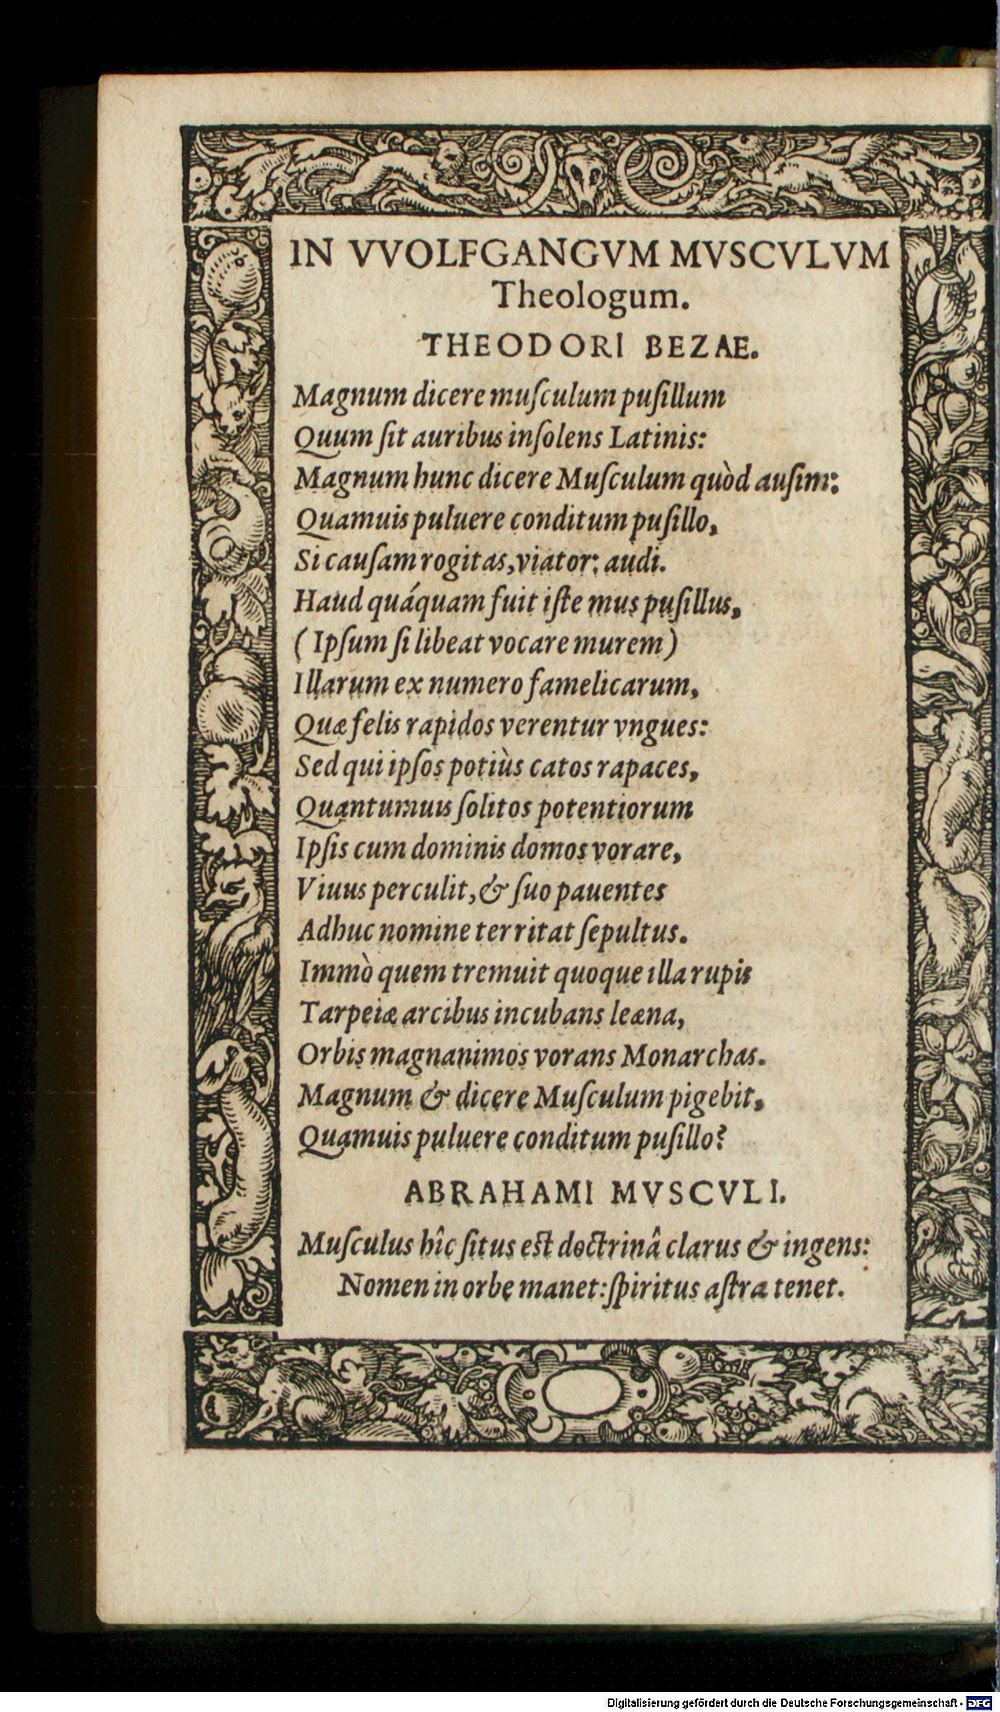 IN VVOLFGANGVM MVSCVLVM
Theologum.
THEODORI BEZAE.
Magnum dicere muſculum puſillum
Quum ſit auribus inſolens Latinis:
Magnum hunc dicere Muſculum quòd auſim:
Quamuis puluere conditum puſillo,
Si cauſam rogitas, viator: audi.
Haud quáquam fuit iſte mus puſillus,
(Ipſum ſi libeat vocare murem)
Illarum ex numero famelicarum,
Quæ felis rapidos verentur vngues:
Sed qui ipſos potiùs catos rapaces,
Quantumuis ſolitos potentiorum
Ipſis cum dominis domos vorare,
Viuus perculit, & ſuo pauentes
Adhuc nomine territat ſepultus.
Immò quem tremuit quoque illa rupis
Tarpeiæ arcibus incubans leæna,
Orbis magnanimos vorans Monarchas.
Magnum & dicere Muſculum pigebit,
Quamuis puluere conditum puſillo?
ABRAHAMI MVSCVLI.
Muſculus hîc ſitus eſt doctrinâ clarus & ingens:
Nomen in orbe manet: ſpiritus aſtra tenet.
Digitalisierung gefördert durch die Deutsche Forschungsgemeinschaft - DFG